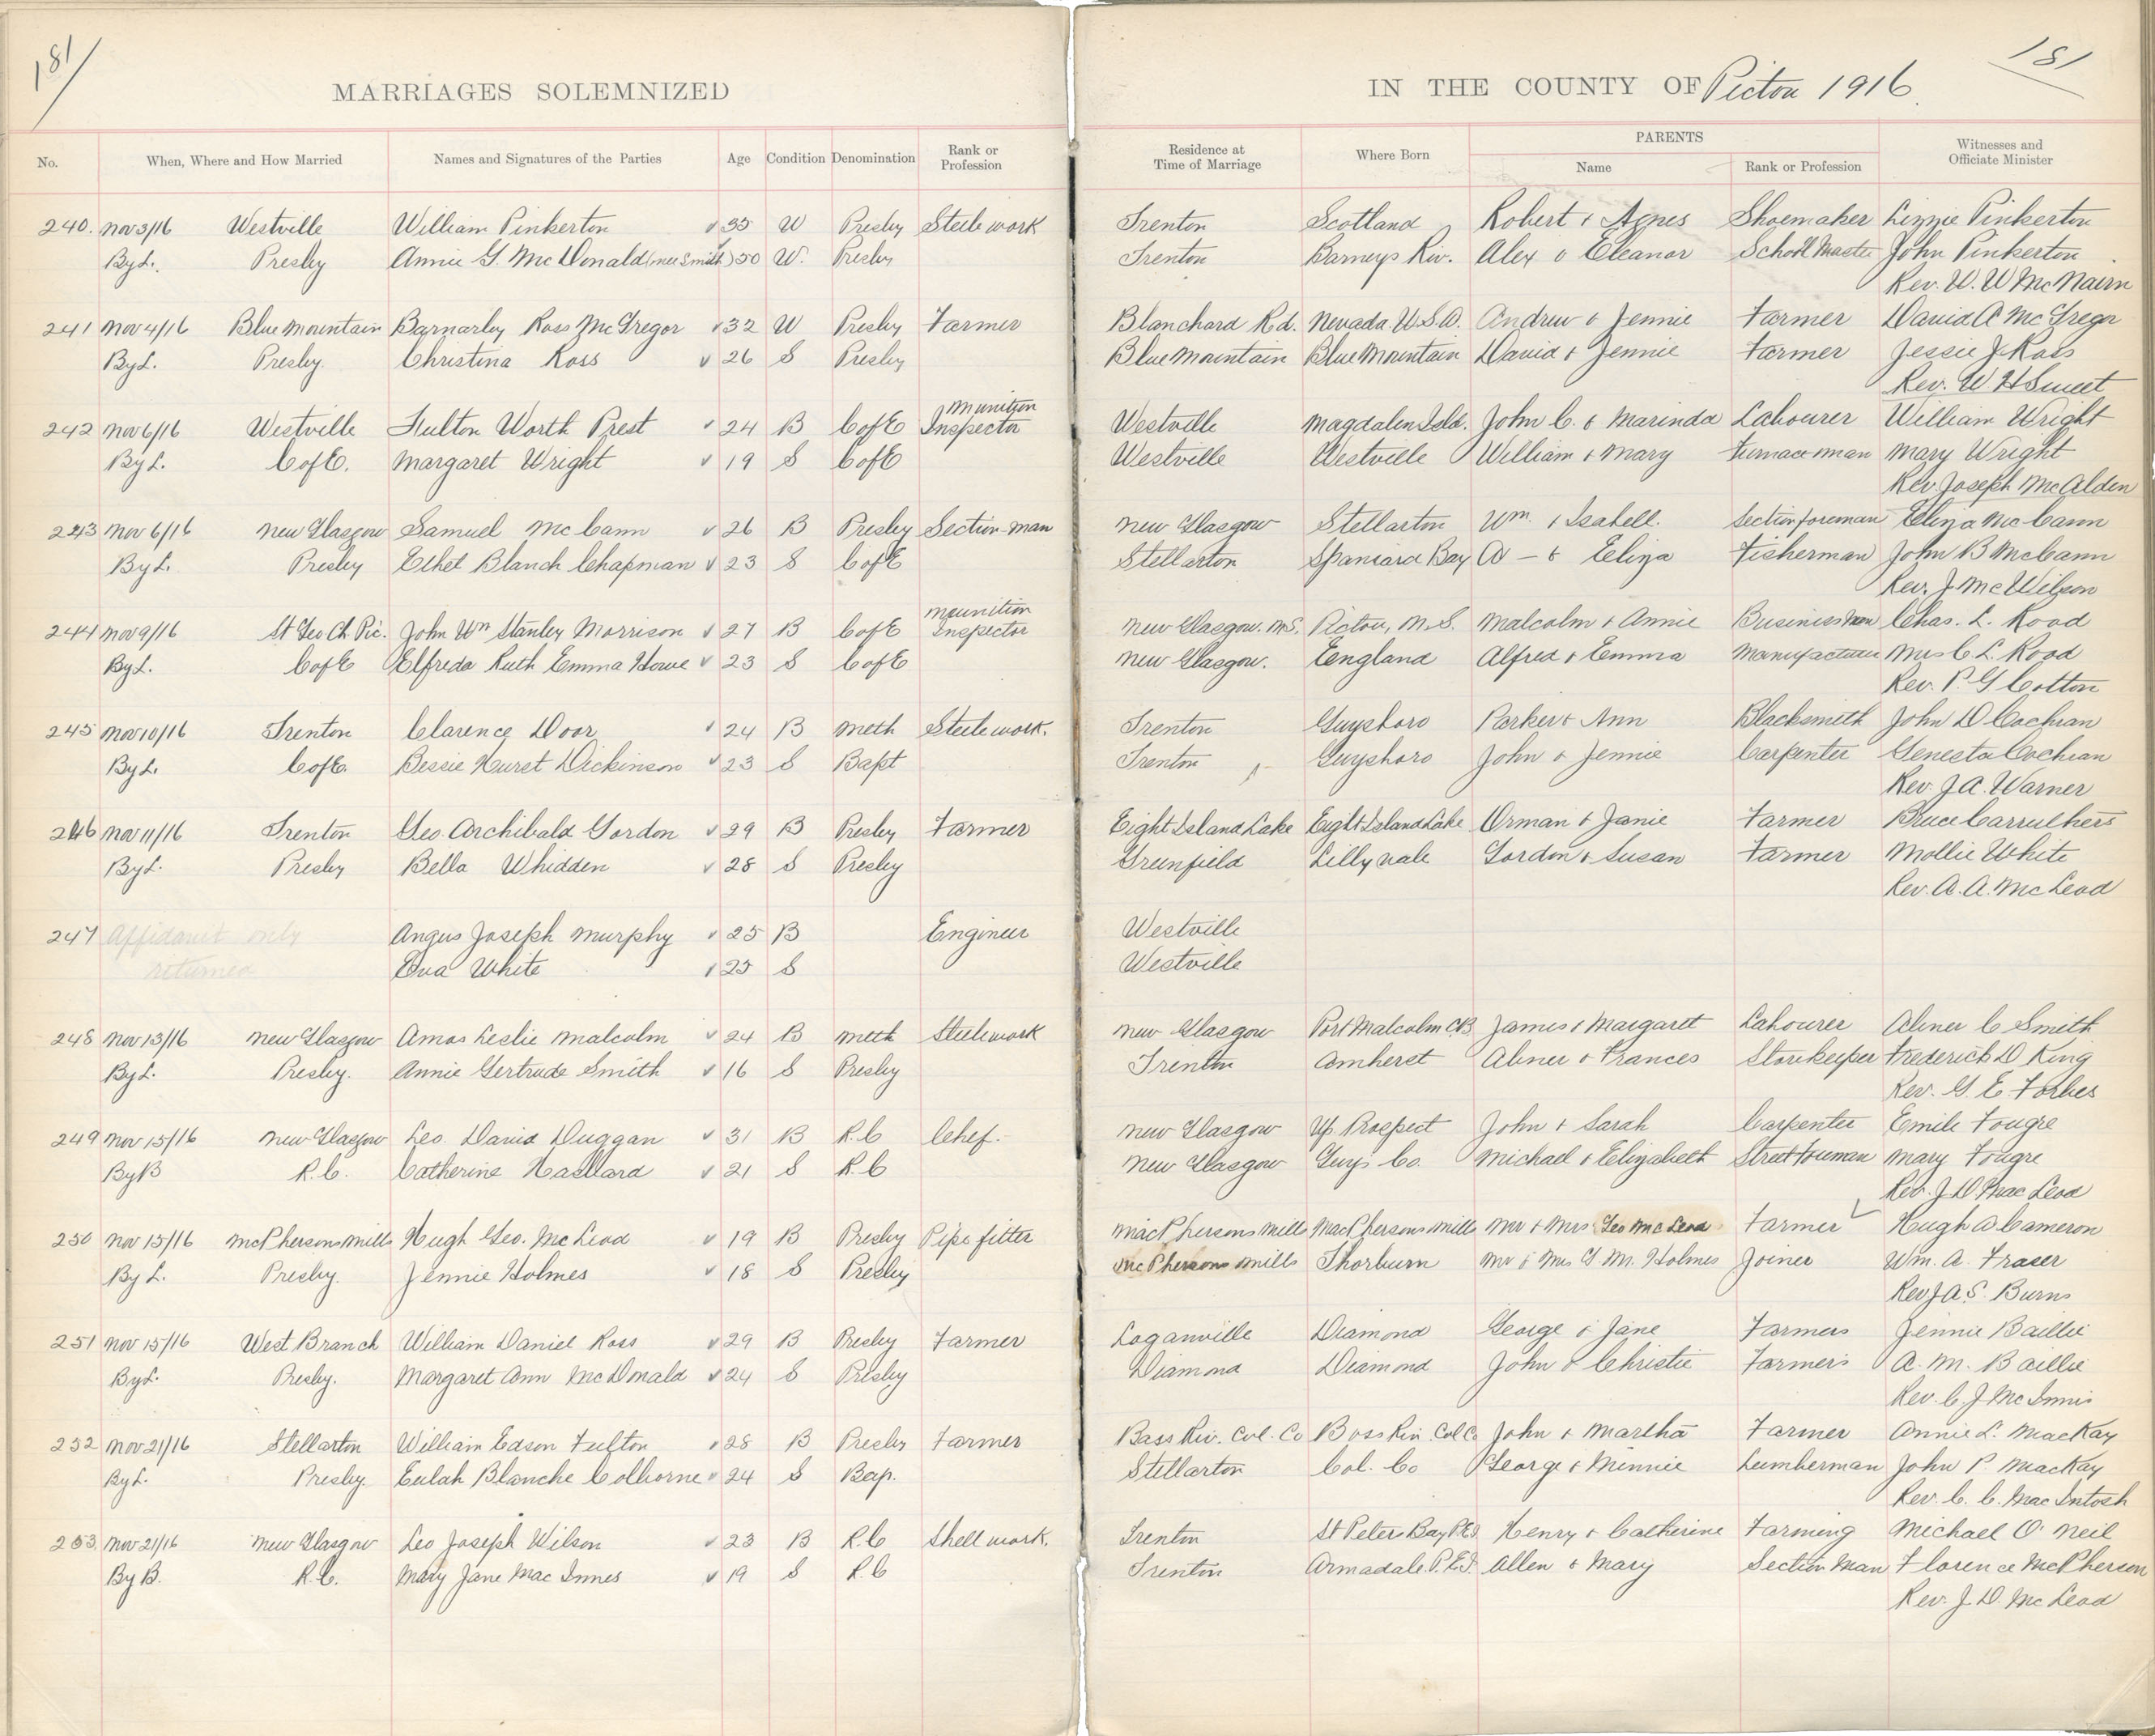 181
MARRIAGES SOLEMNIZED
IN THE COUNTY OF Pictou 1916
181
No. When, Where and How Married Names and Signatures of the Parties Age Condition Denomination Rank or Profession Residence at Time of Marriage Where Born PARENTS Name Rank or Profession Witnesses and Officiate Minister
240. Nov 3/16 Westville William Pinkerton 35 W Presby Steelework Trenton Scotland Robert & Agnes Shoemaker Lizzie Pinkerton
By L. Presby Annie G. McDonald (nee Smith) 50 W. Presby Trenton Barneys Riv. Alex & Eleanor School Master John Pinkerton
Rev. W. W McNairn
241 Nov 4/16 Blue Mountain Barnarley Ross McGregor 32 W Presby Farmer Blanchard Rd. Nevada U.S.A. Andrew & Jennie Farmer David A McGregor
By L. Presby. Christina Ross 26 S Presby Blue Mountain Blue Mountain David & Jennie Farmer Jessie J Ross
Rev. W H Sweet
242 Nov 6/16 Westville Fulton Worth Prest 24 B C of E Munition Inspector Westville Magdalen Isld. John C. & Marinda Labourer William Wright
By L. C of E. Margaret Wright 19 S C of E Westville Westville William & Mary Furnace man Mary Wright
Rev. Joseph McAlden
243 Nov 6/16 New Glasgow Samuel McCann 26 B Presby Section-man New Glasgow Stellarton Wm. & Isabell. Section foreman Eliza McCann
By L. Presby Ethel Blanch Chapman 23 S C of E Stellarton Spaniard Bay A — & Eliza Fisherman John B McCann
Rev. J. McWilson
244 Nov 9/16 St Geo Ch. Pic. John Wm Stanley Morrison 27 B C of E Munition Inspector New Glasgow. N.S. Pictou, N.S. Malcolm & Annie Business Man Chas. L. Rood
By L. C of E Elfreda Ruth Emma Howe 23 S C of E New Glasgow. England Alfred & Emma Manufacturer Mrs C L. Rood
Rev. P. G Cotton
245 Nov 10/16 Trenton Clarence Door 24 B Meth Steelework. Trenton Guysboro Parker & Ann Blacksmith John D Cochran
By L. C of E. Bessie Hurst Dickinson 23 S Bapt Trenton Guysboro John & Jennie Carpenter Genesta Cochran
Rev. J. A. Warner
246 Nov 11/16 Trenton Geo. Archibald Gordon 29 B Presby Farmer Eight Island Lake Eight Island Lake Orman & Janie Farmer Bruce Carruthers
By L. Presby Bella Whidden 28 S Presby Greenfield Lillyvale Gordon & Susan Farmer Mollie White
Rev. A. A. McLeod
247 Affidavit only Angus Joseph Murphy 25 B Engineer Westville
returned Eva White 25 S Westville
248 Nov 13/16 New Glasgow Amos Leslie Malcolm 24 B Meth Steelework New Glasgow Port Malcolm C.B James & Margaret Labourer Abner C Smith
By L. Presby. Annie Gertrude Smith 16 S Presby Trenton Amherst Abner & Frances Storekeeper Frederick D King
Rev. G. E Forbes
249 Nov 15/16 New Glasgow Leo. David Duggan 31 B R.C Chef. New Glasgow Up Prospect John & Sarah Carpenter Emile Fougre
By B R.C. Catherine 21 S R.C New Glasgow Guys Co. Michael & Elizabeth Street Foreman Mary Fougre
Rev. J. D MacLeod
250 Nov 15/16 McPhersons Mills Hugh Geo. McLeod 19 B Presby Pipe fitter MacPhersons Mills MacPhersons Mills Mr & Mrs Geo McLeod Farmer Hugh A Cameron
By L. Presby. Jennie Holmes 18 S Presby McPhersons Mills Thorburn Mr & Mrs G M. Holmes Joiner Wm. A. Fraser
Rev J A S. Burns
251 Nov 15/16 West Branch William Daniel Ross 29 B Presby Farmer Loganville Diamond George & Jane Farmers Jennie Baillie
By L. Presby. Margaret Ann McDonald 24 S Presby Diamond Diamond John & Christie Farmers A. M. Baillie
Rev. C J McInnis
252 Nov 21/16 Stellarton William Edson Fulton 28 B Presby Farmer Bass Riv. Col. Co Bass Riv. Col Co John & Martha Farmer Annie L. MacKay
By L. Presby. Eulah Blanche Colborne 24 S Bap. Stellarton Col. Co George & Minnie Lumberman John P MacKay
Rev. C. C. MacIntosh
253 Nov 21/16 New Glasgow Leo Joseph Wilson 23 B R.C Shell work. Trenton St Peters Bay P.E.I. Henry & Catherine Farming Michael O'Neil
By B. R.C. Mary Jane MacInnes 19 S R.C Trenton Armadale. P.E.I. Allen & Mary Section Man Florence McPherson
Rev. J. D. McLeod